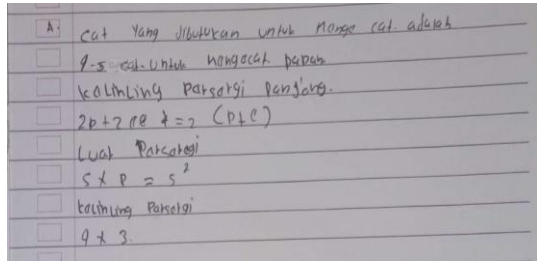 A. cat yang dibutukan untuk menge cat. adalah
9-5 cat. untuk mengecat papan
kolinling parsergi panjang.
2p+2 l = 2 (p+l)
Luas Parseregi
s x p = s²
kolinling Parsergi
9 x 3.